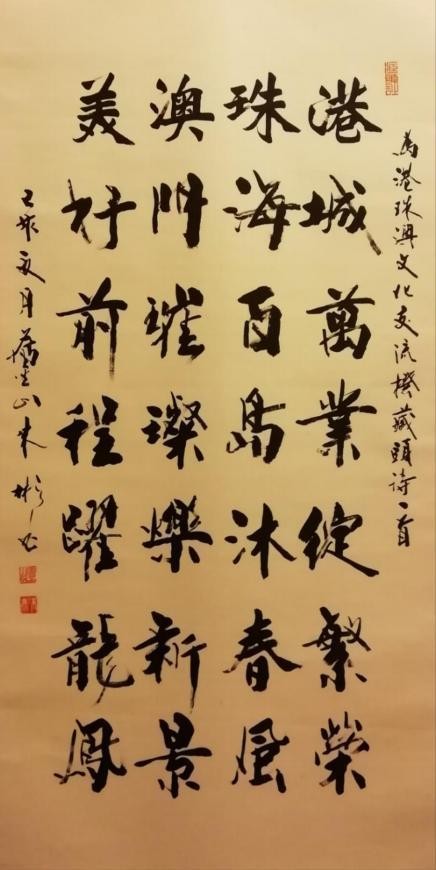 為港珠澳文化交流撰藏頭詩一首
港城萬業綻繁榮
珠海百島沐春風
澳門璀璨爍新景
美好前程躍龍鳳
己亥夏月舊金山